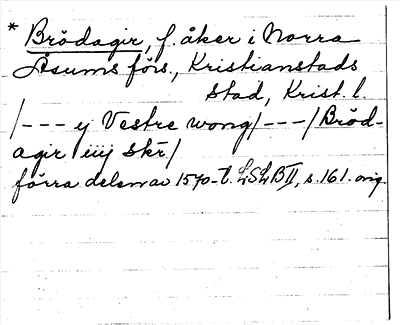 * Brödagir, f. åker i Norra
Åsums förs., Kristianstads
stad, Krist. l.
/--- y Vestre wong/---/Bröd-
agir iiij skr/
förra delen av 1570-t. LSLB II, s. 161. orig.